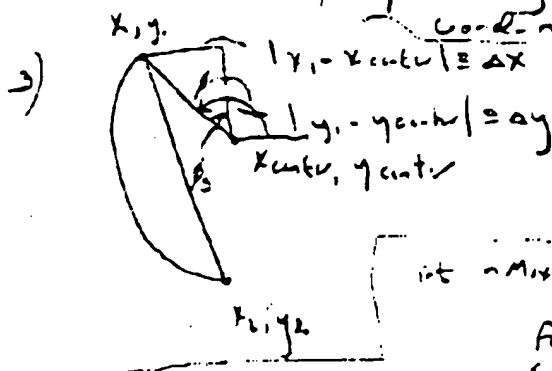 3)
x, y.
| x, - x center | ≅ Δx
| y, - y center | ≅ Δy
x center, y center
φ
φ3
x2, y2
int